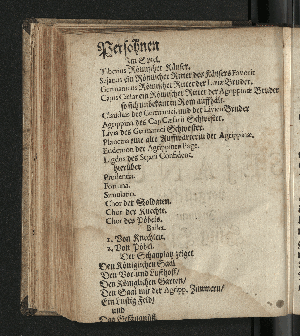 Persohnen
Im Spiel.
Tiberius Römischer Käyser.
Sejanus ein Römischer Ritter des Käysers Favorit
Germanicus Römischer Ritter der Livia Bruder,
Cajus Caesar ein Römischer Ritter der Agrippinæ Bruder
so sich unbekannt in Rom auffhält.
Claudius des Germanici und der Livien Bruder
Agrippina des Caj. Caesaris Schwester.
Livia des Germanici Schwester.
Plancina eine alte Auffwärterin der Agrippinæ,
Eudemon der Agrippinen Page.
Ligdus des Sejani Confident.
hierüber
Prudentia.
Fortuna.
Simulatio.
Chor der Soldaten.
Chor der Knechte.
Chor des Pöbels.
Ballet.
1. Von Knechten.
2. Von Pöbel.
Der Schauplatz zeiget
Den Königlichen Saal
Den Vor- und Lusthoff/
Den Königlichen Garten/
Den Saal mit der Agripp. Zimmern/
Ein Lustig Feld/
und
Das Gefängnüß.